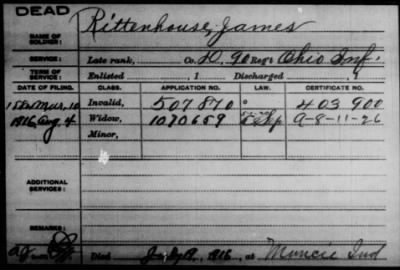 DEAD
Rittenhouse, James
NAME OF SOLDIER:
SERVICE: Late rank, Co. D, 90 Reg't Ohio Inf.
TERM OF SERVICE: Enlisted , 1 Discharged , 1
DATE OF FILING. CLASS. APPLICATION NO. LAW. CERTIFICATE NO.
Invalid, 507870 403900
1916, Aug. 4 Widow, 1070659 A-8-11-26
Minor,
ADDITIONAL SERVICES:
REMARKS:
Died July 9, 1916, at Muncie Ind